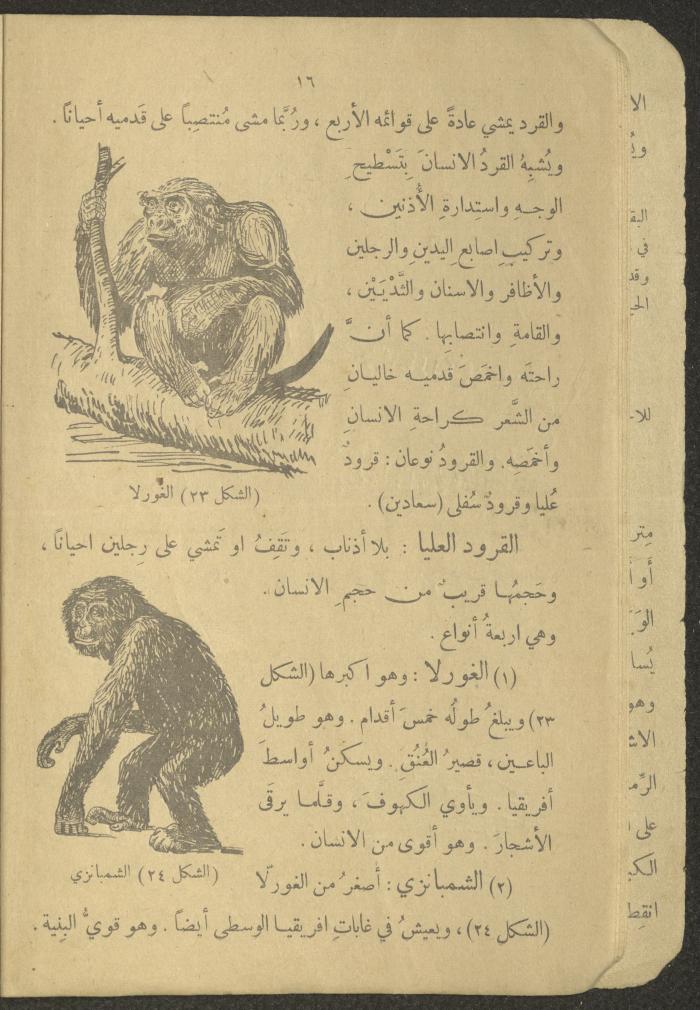 ١٦
والقرد يمشي عادةً على قوائمه الأربع ، ورُبَّما مشى مُنتصِباً على قَدميه أحياناً .
ويُشبِهُ القردُ الانسانَ بِتَسْطيحِ
الوجـهِ واستِدارةِ الأُذنين ،
وتركيبِ اصابعِ اليدينِ والرجلين
والأظافر والاسنان والثَّدْيَيْن ،
والقامةِ وانتصابِها . كما أنَّ
راحتَه واخمَصَ قدميـه خاليـانِ
من الشَّعر كـراحةِ الانسانِ
وأخمَصِه. والقرودُ نوعان : قرودٌ
عُليا وقرودٌ سُفلى (سعادين) .
(الشكل ٢٣) الغورلا
القرود العليا : بلا أذناب ، وتَقِفُ او تَمشي على رِجلين احيانًا ،
وحَجمُهـا قريبٌ من حجمِ الانسان .
وهي اربعةُ أنواع .
(١) الغورلا : وهو اكبرها (الشكل
٢٣) ويبلغُ طولُه خمسَ أقدام . وهو طويلُ
الباعـين ، قصيرُ العُنُق . ويسكنُ أواسطَ
أفريقيا . ويأوي الكهوفَ ، وقـلَّمـا يرقَى
الأشجارَ . وهو أقوى من الانسان .
(٢) الشمبانزي : أصغرُ من الغورلا
(الشكل ٢٤) الشمبانزي
(الشكل ٢٤) ، ويعيشُ في غاباتِ افريقيـا الوسطى أيضاً . وهو قويُّ البِنية .